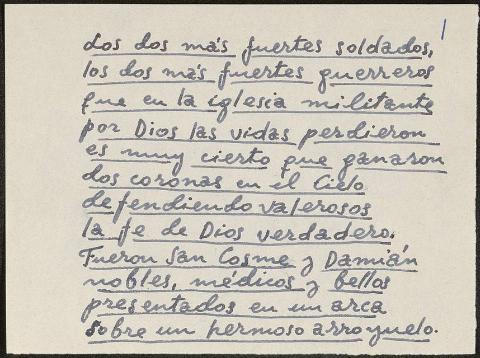 1
Los dos más fuertes soldados,
los dos más fuertes guerreros
que en la iglesia militante
por Dios las vidas perdieron
es muy cierto que ganaron
dos coronas en el Cielo
defendiendo valerosos
la fe de Dios verdadero.
Fueron San Cosme y Damián
nobles, médicos y bellos
presentados en un arca
sobre un hermoso arroyuelo.